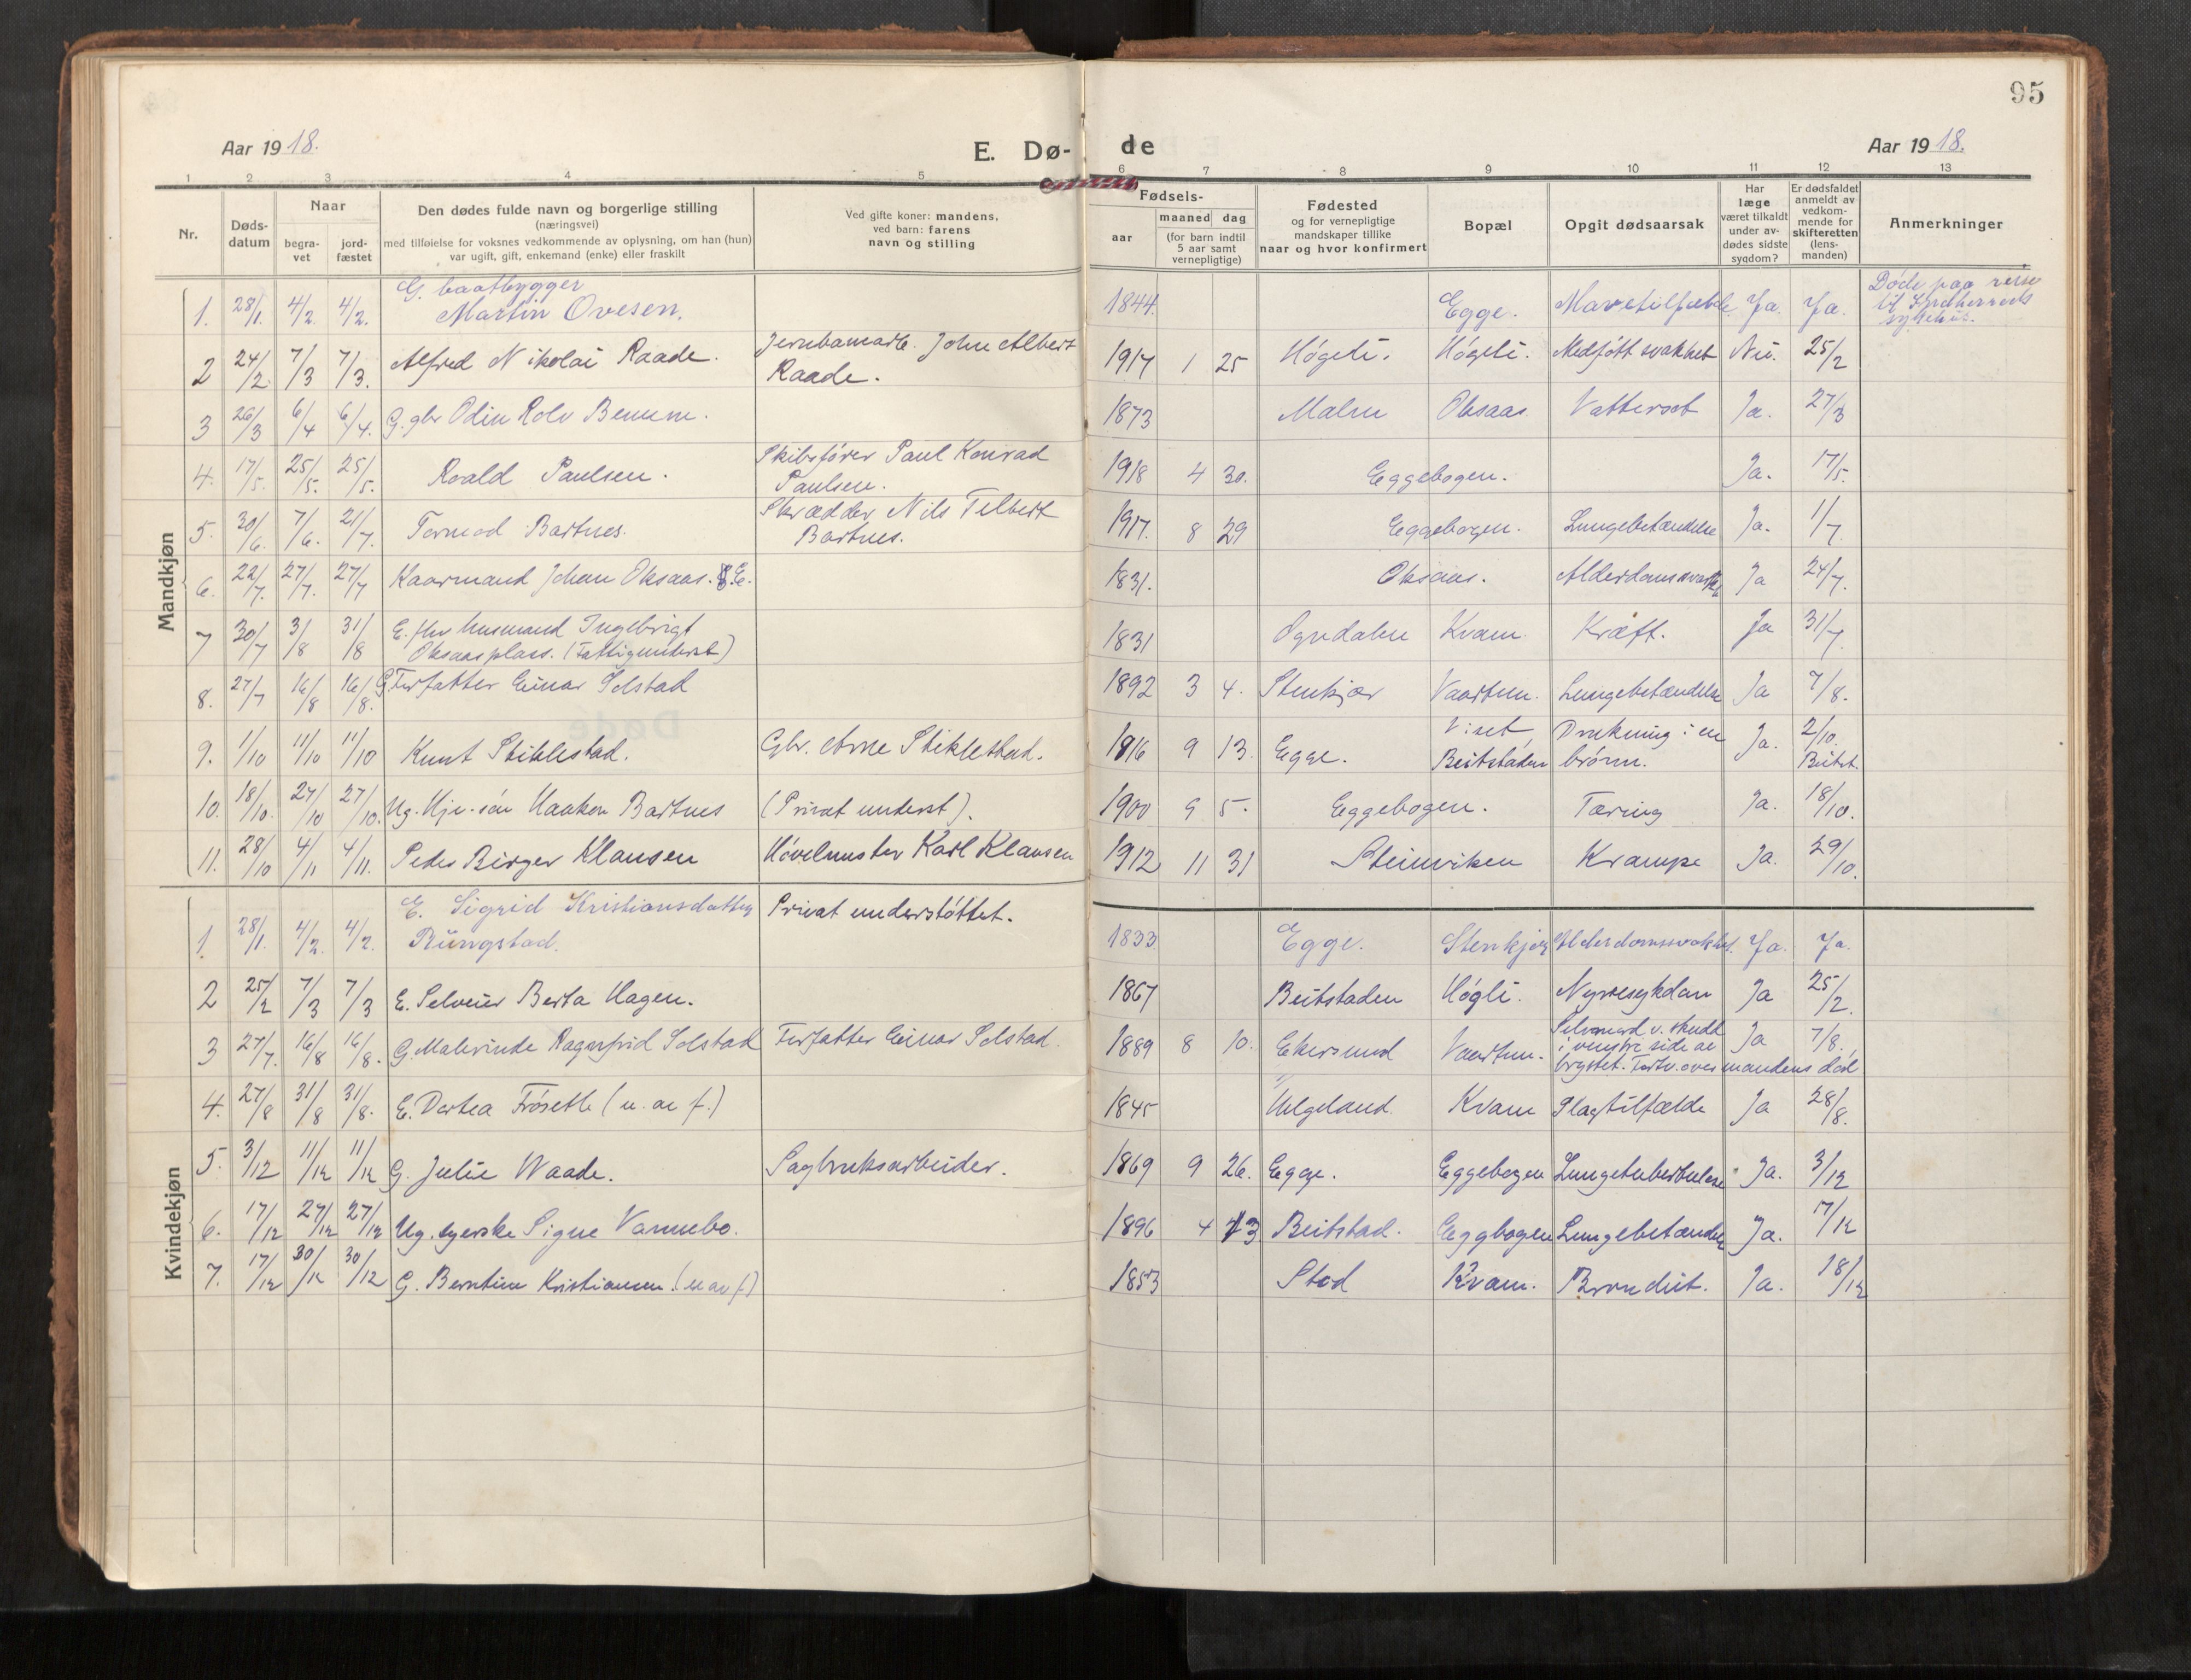 95
Aar 1918.
E. Dø-de
Aar 1918.
1 2 3 4 5 6 7 8 9 10 11 12 13
Nr.
Døds-datum
Naar
begra-vet
jord-fæstet
Den dødes fulde navn og borgerlige stilling
(næringsvei)
med tilføielse for voksnes vedkommende av oplysning, om han (hun)
var ugift, gift, enkemand (enke) eller fraskilt
Ved gifte koner: mandens,
ved barn: farens
navn og stilling
Fødsels-
aar
maaned dag
(for barn indtil
5 aar samt
vernepligtige)
Fødested
og for vernepligtige
mandskaper tillike
naar og hvor konfirmert
Bopæl
Opgit dødsaarsak
Har
læge
været tilkaldt
under av-
dødes sidste
sygdom?
Er dødsfaldet
anmeldt av
vedkom-
mende for
skifteretten
(lens-
manden)
Anmerkninger
Mandkjøn
1. 28/1. 4/2. 4/2. G. baatbygger Martin Ovesen. 1844. Egge. Mavetilfælde. Ja. Ja. Døde paa reise til Indherreds sykehus.
2 24/2 7/3 7/3. Alfred Nikolai Raade. Jernbanearb. John Albert Raade. 1917 1 25 Høgeli. Høgeli. Medfött svakhet Nei. 25/2
3 26/3 6/4 6/4. G. gbr Odin Rolv Benum. 1873 Malm Oksaas. Vattersot Ja. 27/3
4. 17/5. 25/5. 25/5. Roald Paulsen. Skibsfører Paul Konrad Paulsen. 1918 4 30. Eggebogen. Ja. 17/5.
5. 30/6. 7/6. 21/7. Tormod Bartnes. Skrædder Nils Telbert Bartnes. 1917. 8 29 Eggebogen. Lungebetændelse Ja. 1/7.
6. 22/7. 27/7. 27/7 Kaarmand Johan Oksaas. E. 1831. Oksaas. Alderdomssvakh. Ja 24/7.
7 30/7 3/8 31/8 E. fhv husmand Ingebrigt Oksaasplass. (Fattigunderst) 1831 Ogndalen Kvam. Kræft. Ja 31/7.
8. 27/7 16/8 16/8. G Forfatter Einar Solstad 1892 3 4. Stenkjær Vaartun. Lungebetændelse Ja 7/8.
9. 1/10 11/10 11/10 Knut Stiklestad. Gbr. Arne Stiklestad. 1916 9 13. Egge. Viset, Beitstaden Drukning i en brønn. Ja. 2/10. Beitst.
10. 18/10. 27/10 27/10. Ug. Hje. søn Haakon Bartnes (Privat underst). 1900 9 5. Eggebogen. Tæring Ja. 18/10.
11. 28/10 4/11 4/11. Peder Birger Klausen Høvelmester Karl Klausen 1912 11 31 Steinviken Krampe Ja. 29/10.
Kvindekjøn
1. 28/1. 4/2. 4/2. E. Sigrid Kristiansdatter Rungstad. Privat understøttet. 1833 Egge. Stenkjær Alderdomssvakhet. Ja. Ja.
2 25/2 7/3 7/3 E. Selveier Berta Hagen. 1867 Beitstaden Høgli. Nyresykdom Ja 25/2.
3 27/7. 16/8 16/8. G. Malvinde Ragnfrid Solstad Forfatter Einar Solstad. 1889 8 10. Ekersund Vaartun. Selvmord v. skudd i venstre side av brystet. Fortv. over mandens død Ja 7/8.
4. 27/8 31/8 31/8. E. Dortea Frösetle (u. av f.) 1845 Helgeland. Kvam Slagtilfælde Ja 28/8.
5. 3/12 11/12 11/12 G. Julie Waade. Sagbruksarbeider. 1869 9 26. Egge. Eggebogen Lungetuberkulose Ja. 3/12
6. 17/12 27/12 27/12 Ug. syerske Signe Vannebo. 1896 4 13 Beitstad. Eggbogen Lungebetændelse Ja. 17/12
7. 17/12 30/12 30/12 G. Berntine Kristiansen. (u av f) 1853 Stod Kvam. Bronchit. Ja. 18/12